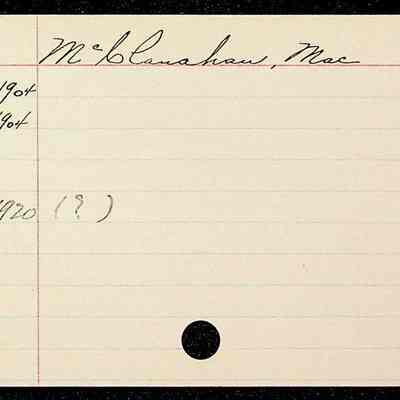 McClanahan, Mac
1904
1904
1920 (?)